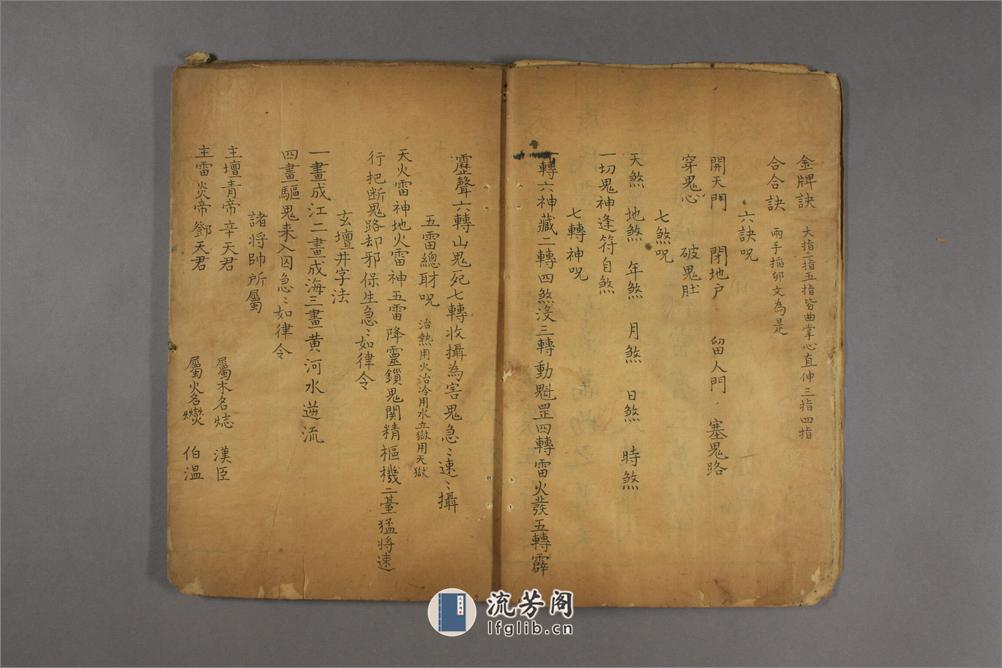 金牌訣 大指二指五指皆曲掌心直伸三指四指
合合訣 兩手搯卯文為是
六訣呪
開天門 閉地户 留人門 塞鬼路
穿鬼心 破鬼肚
七煞呪
天煞 地煞 年煞 月煞 日煞 時煞
一切鬼神逢符自煞
七轉神呪
一轉六神藏二轉四煞沒三轉動魁罡四轉雷火發五轉霹
靂聲六轉山鬼死七轉收攝為害鬼急〻速〻攝
五雷總財呪 治熱用火治冷用水立獄用天獄
天火雷神地火雷神五雷降靈鎖鬼関精樞機二臺猛將速
行把断鬼路却邪保生急〻如律令
玄壇井字法
一畫成江二畫成海三畫黄河水逆流
四畫驅鬼来入囚急〻如律令
諸將帥所屬
主壇青帝辛天君 屬木名 漢臣
主雷炎帝鄧天君 屬火名燮 伯温
流芳阁
lfglib.cn